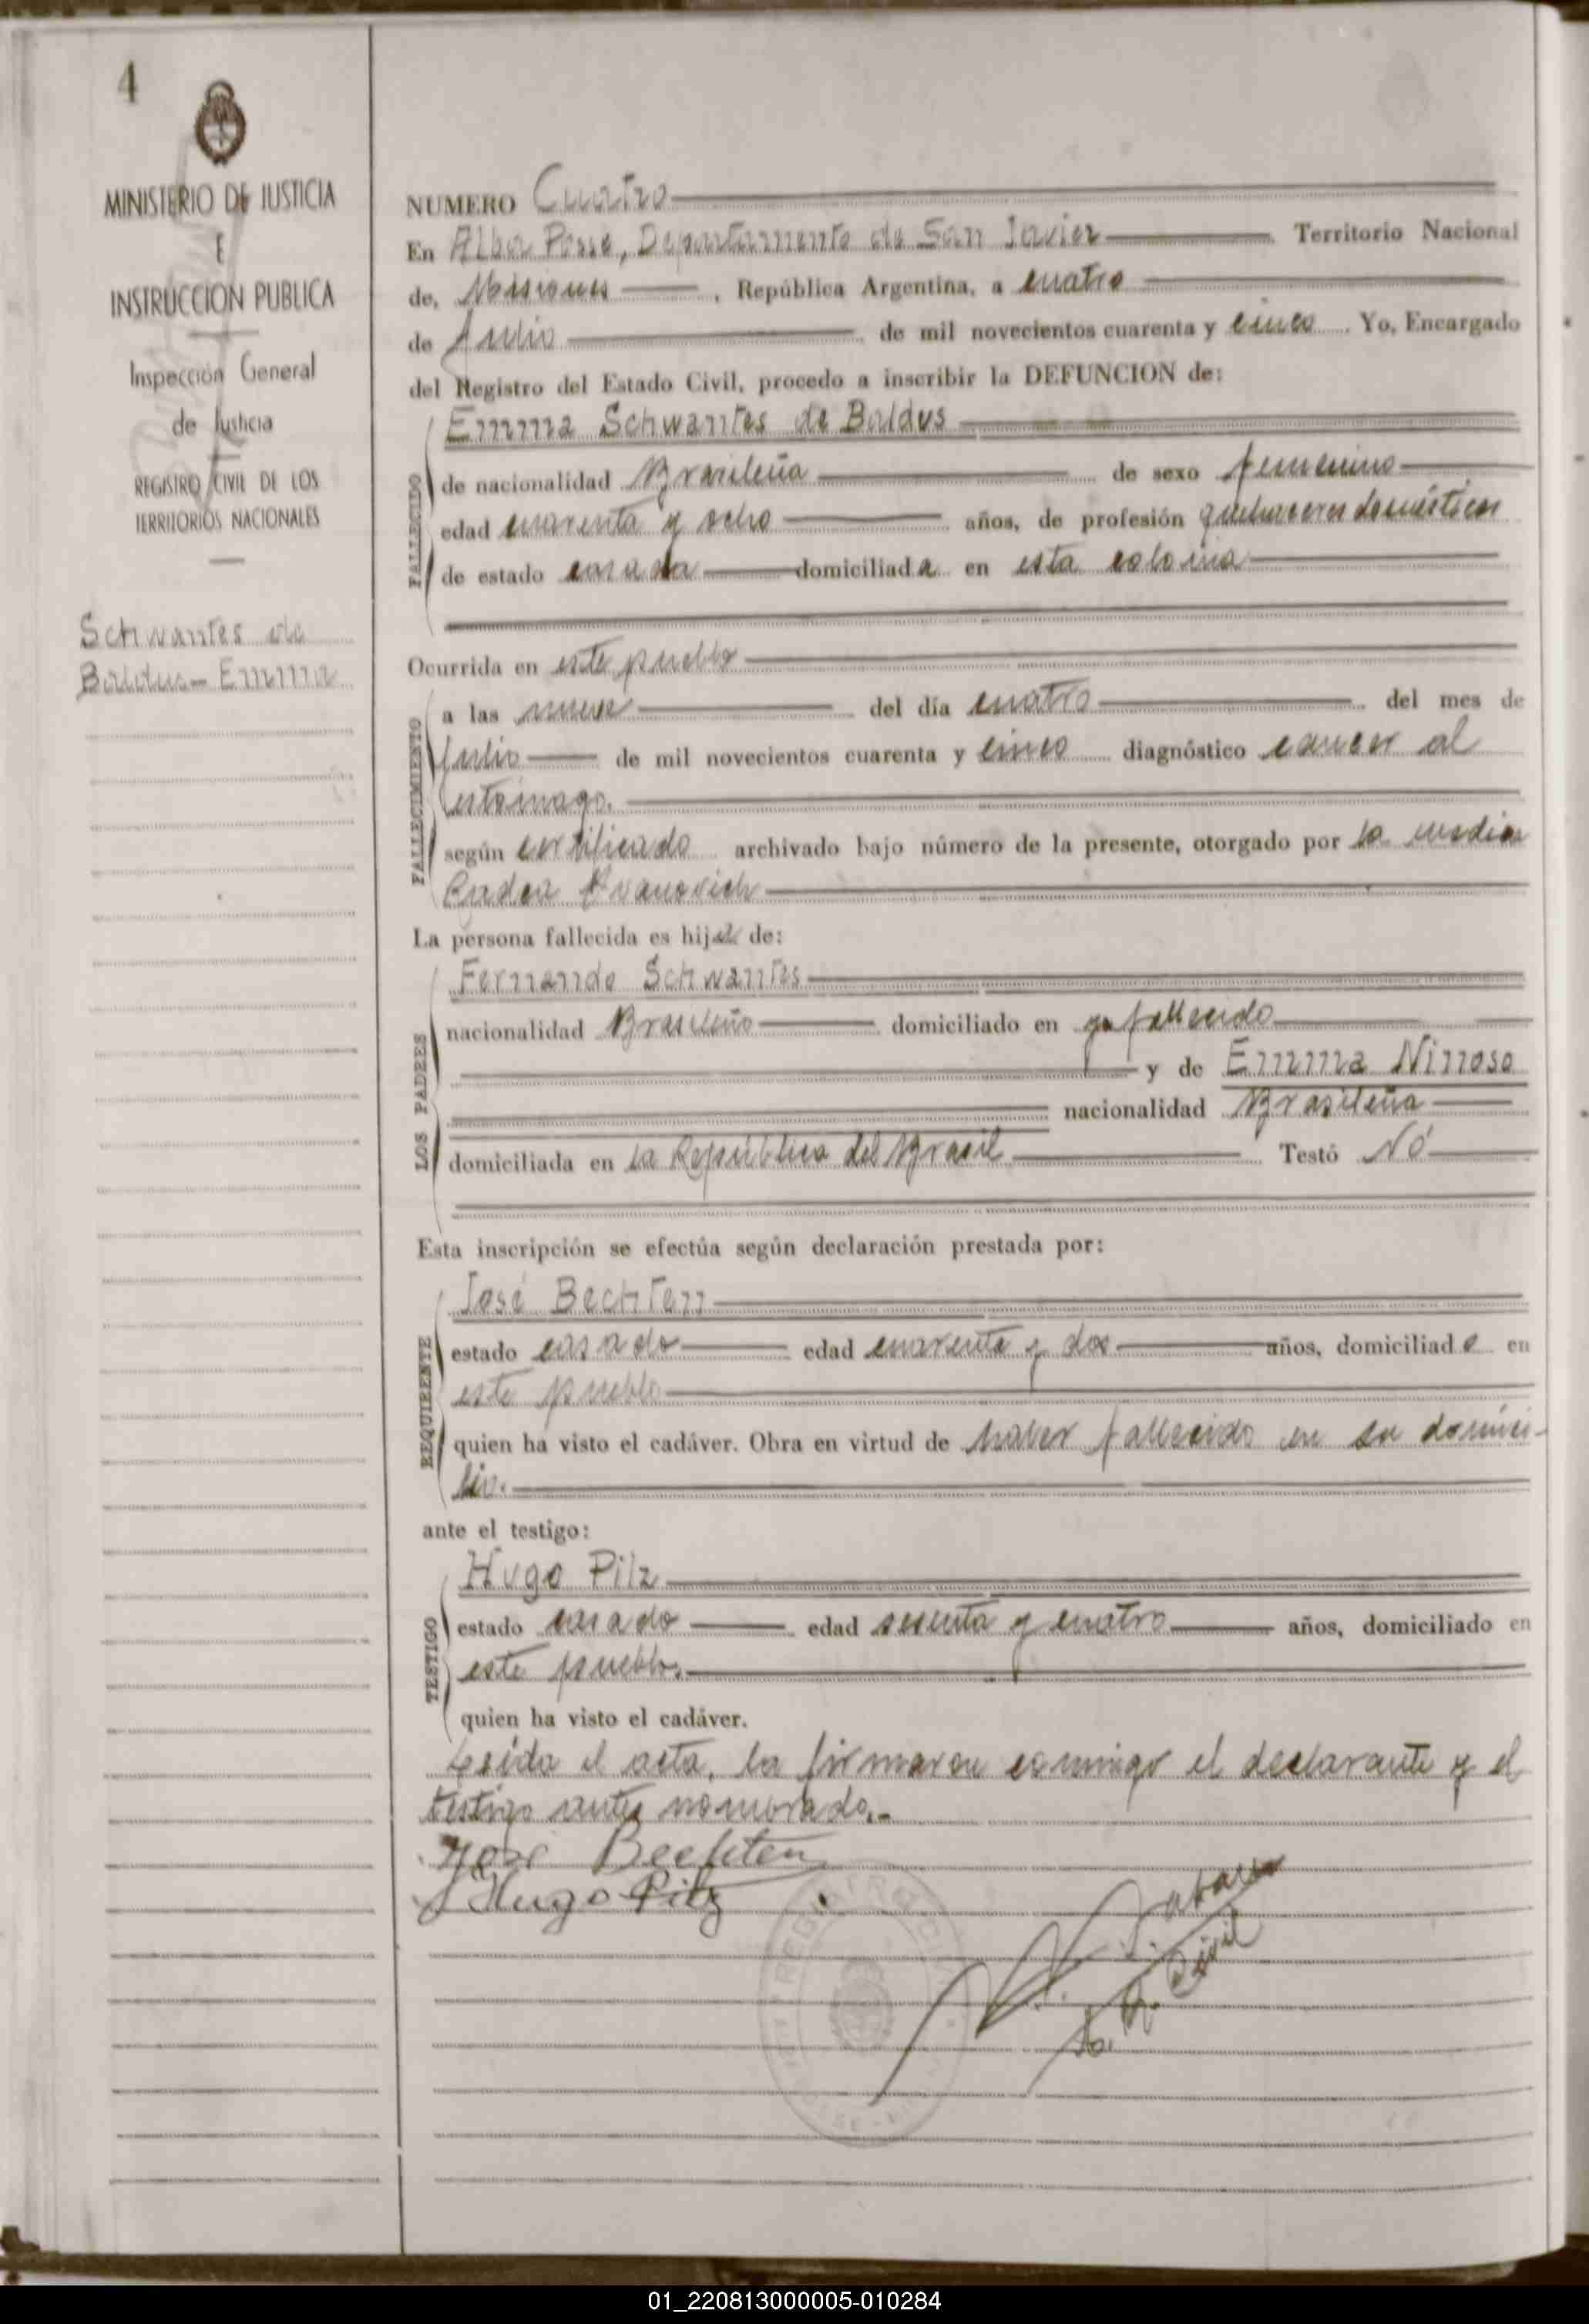 4
MINISTERIO DE JUSTICIA
E
INSTRUCCION PUBLICA
Inspección General
de Justicia
REGISTRO CIVIL DE LOS
TERRITORIOS NACIONALES
Schwantes de
Baldus - Emma
NUMERO Cuatro
En Alba Posse, Departamento de San Javier Territorio Nacional
de, Misiones, República Argentina, a cuatro
de Julio de mil novecientos cuarenta y cinco. Yo, Encargado
del Registro del Estado Civil, procedo a inscribir la DEFUNCION de:
FALLECIDO
Emma Schwantes de Baldus
de nacionalidad Brasileña de sexo femenino
edad cuarenta y ocho años, de profesión quehaceres domésticos
de estado casada domiciliada en esta colonia
Ocurrida en este pueblo
FALLECIMIENTO
a las nueve del día cuatro del mes de
Julio de mil novecientos cuarenta y cinco diagnóstico cancer al
estómago.
según certificado archivado bajo número de la presente, otorgado por la medica
Ivanovich
La persona fallecida es hija de:
LOS PADRES
Fernando Schwantes
nacionalidad Brasileño domiciliado en ya fallecido
y de Emma Ninoso
nacionalidad Brasileña
domiciliada en la República del Brasil Testó Nó
Esta inscripción se efectúa según declaración prestada por:
REQUIRENTE
José Bechten
estado casado edad cuarenta y dos años, domiciliado en
este pueblo
quien ha visto el cadáver. Obra en virtud de haber fallecido en su domici-
lio.
ante el testigo:
TESTIGO
Hugo Pilz
estado casado edad sesenta y cuatro años, domiciliado en
este pueblo.
quien ha visto el cadáver.
Leída el acta, la firmaron conmigo el declarante y el
testigo antes nombrado.-
José Bechten
Hugo Pilz
R. Civil
01_220813000005-010284